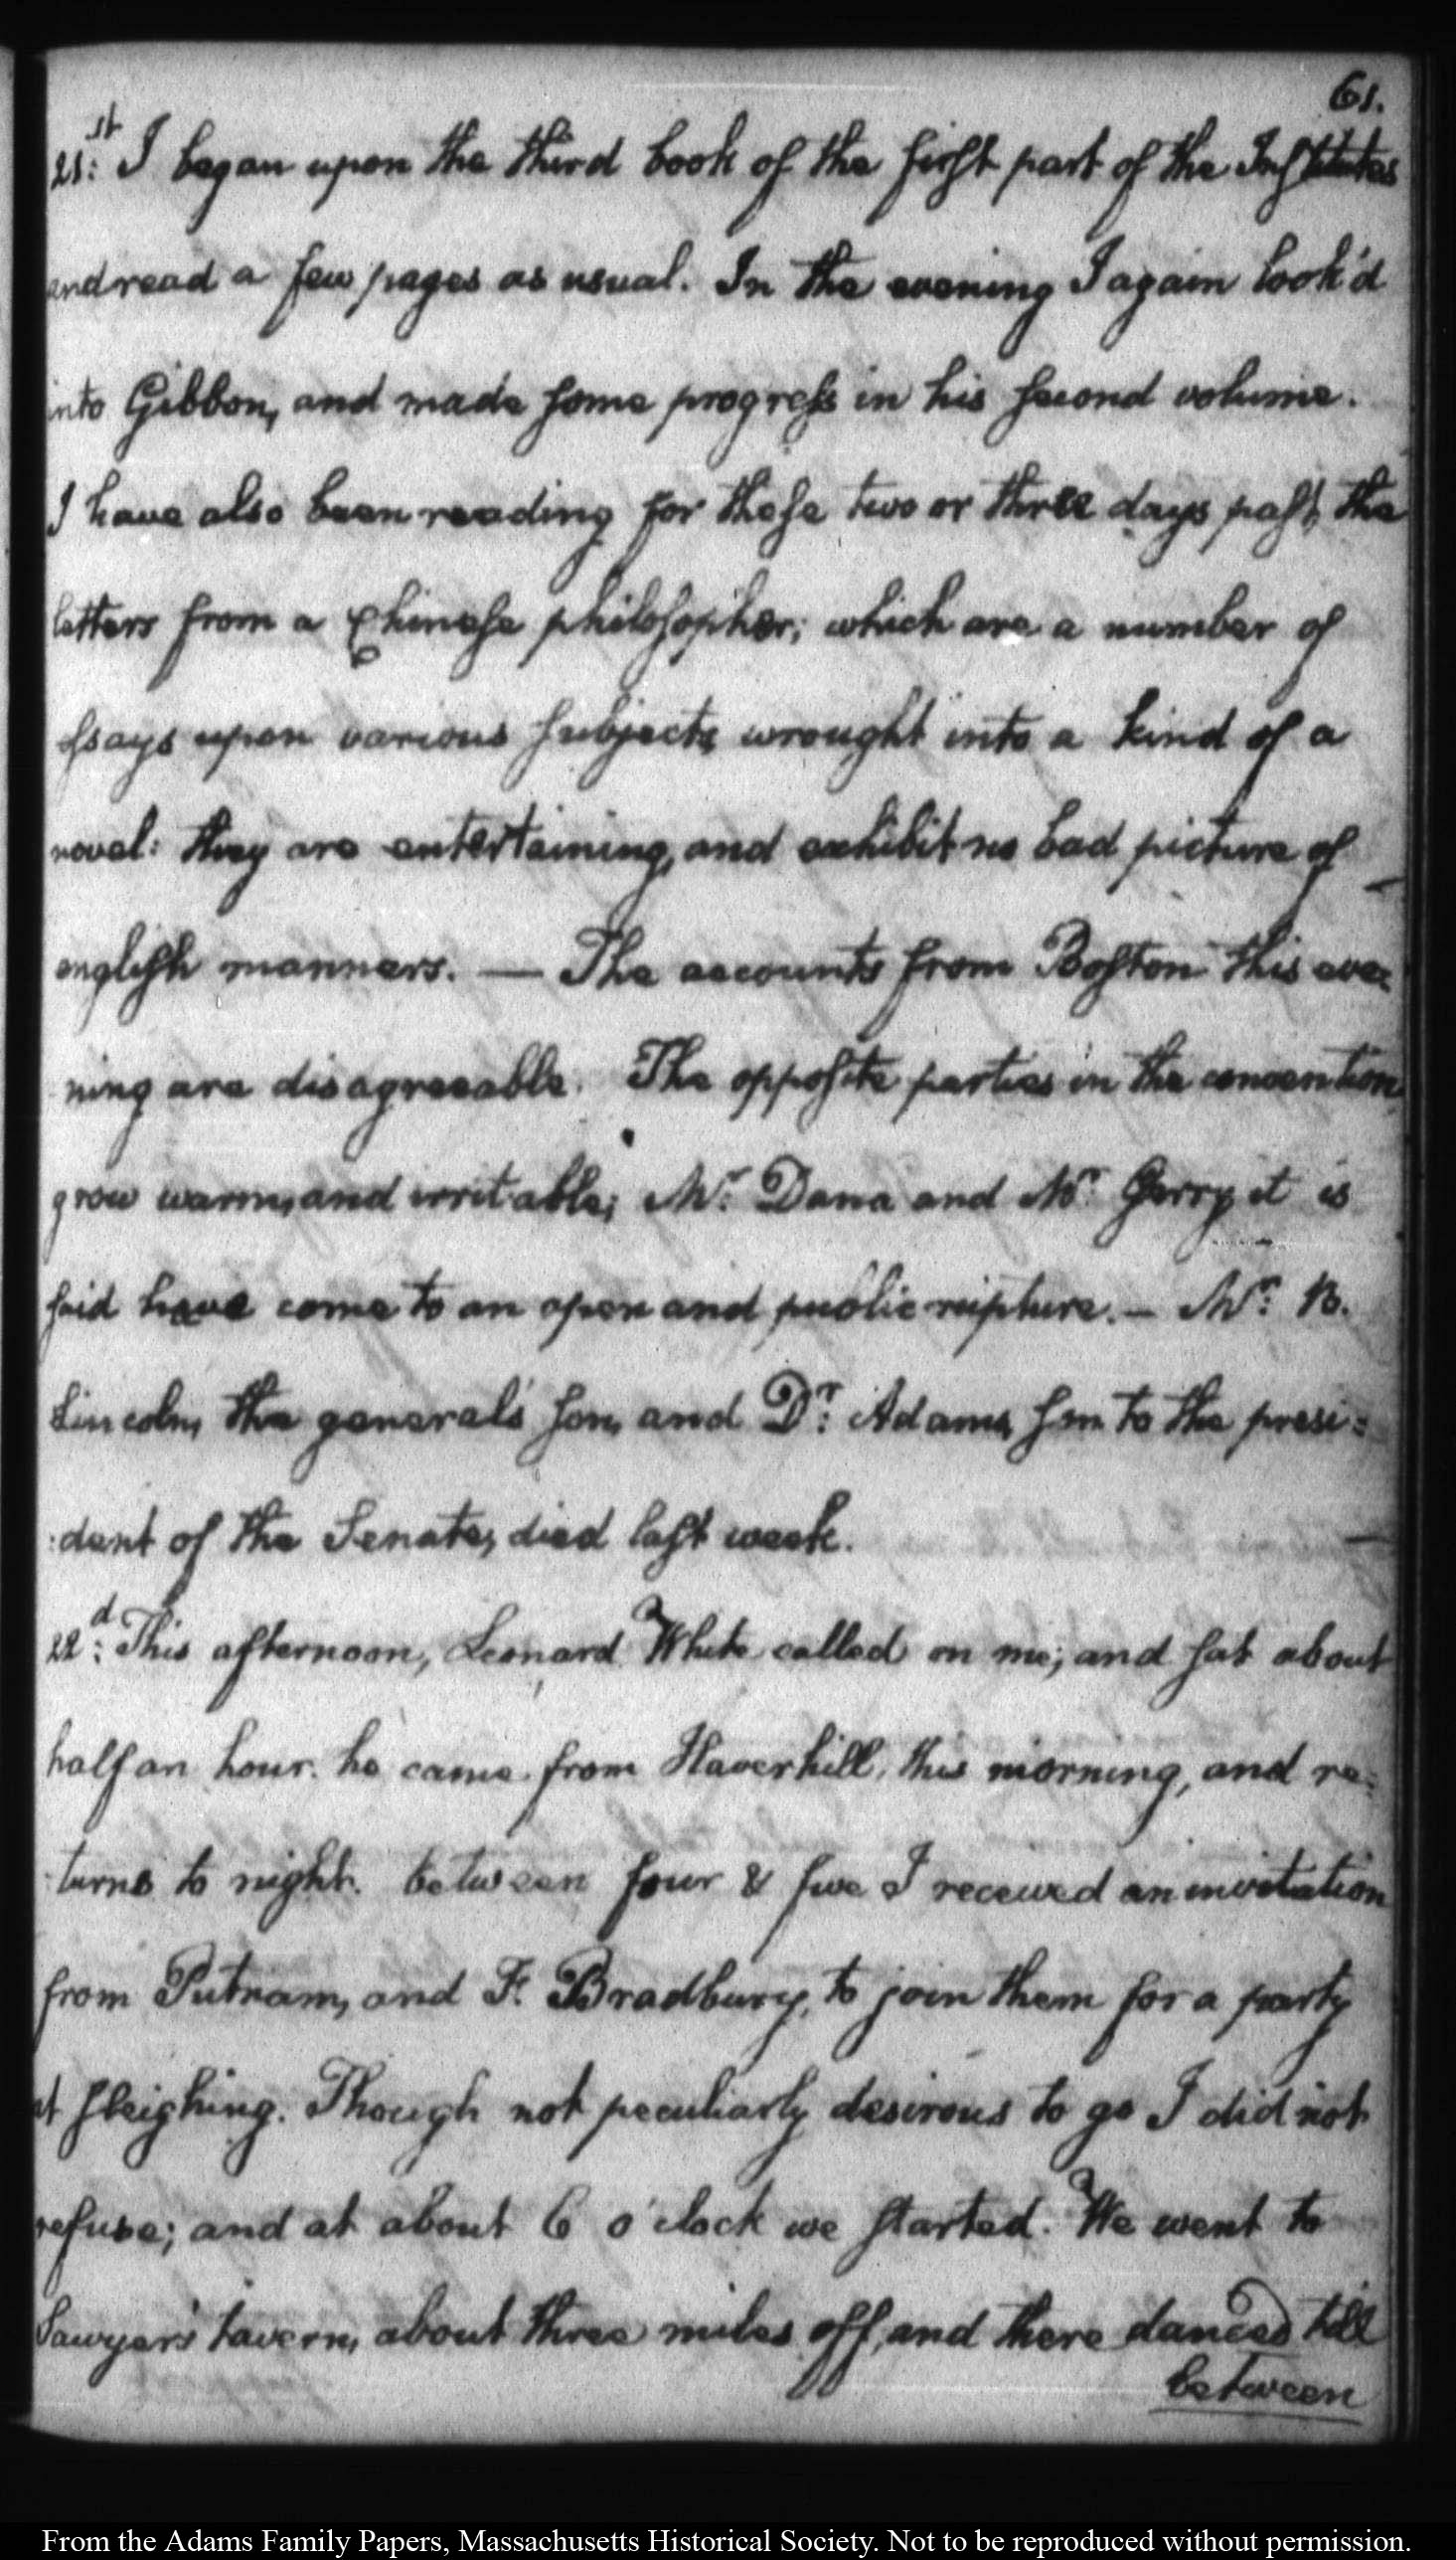 61.
21:st I began upon the third book of the first part of the Institutes
and read a few pages as usual. In the evening I again look'd
into Gibbon, and made some progress in his second volume.
I have also been reading for these two or three days past, the
letters from a Chinese philosopher; which are a number of
essays upon various subjects wrought into a kind of a
novel: they are entertaining, and exhibit no bad picture of
english manners. — The accounts from Boston this eve-
ning are disagreeable. The opposite parties in the convention
grow warm, and irritable; Mr: Dana and Mr: Gerry it is
said have come to an open and public rupture. — Mr: B.
Lincoln, the general's son, and Dr: Adams, son to the presi=
:dent of the Senate, died last week.
22:d This afternoon, Leonard White called on me; and sat about
half an hour. he came from Haverhill, this morning, and re=
:turns to night. between four & five I received an invitation
from Putnam, and F. Bradbury, to join them for a party
at sleighing. Though not peculiarly desirous to go I did not
refuse; and at about 6 o'clock we started. We went to
Sawyer's tavern, about three miles off, and there danced till
between
From the Adams Family Papers, Massachusetts Historical Society. Not to be reproduced without permission.